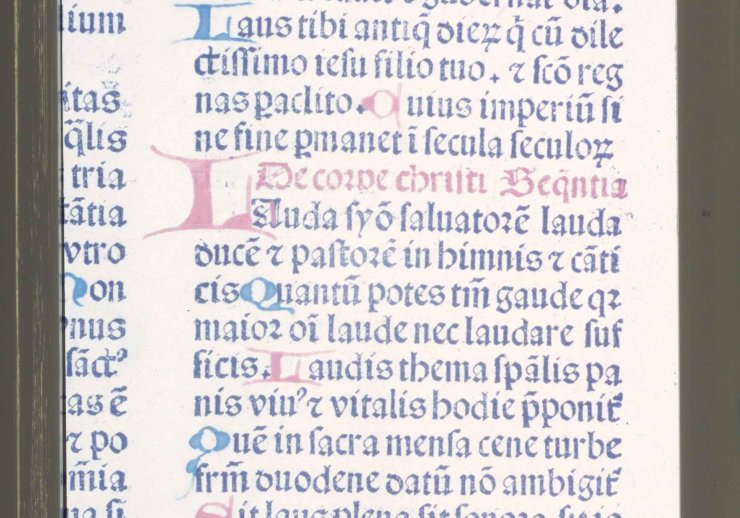 lium
itas
q̄lis
tria
tātia
vtro
Non
nus
sāctꝰ
tas ē
⁊ po
om̄ia
na si
⁊ gubernat oīa.
Laus tibi antiq̄ dieꝝ q̄ cū dile
ctissimo iesu filio tuo. ⁊ scō reg
nas ꝑaclito. Cuius imperiū si
ne fine ꝑmanet ī secula seculoꝝ
De corpe christi Seq̄ntia
LAuda syō saluatorē lauda
ducē ⁊ pastorē in himnis ⁊ cāti
cis Quantū potes tm̄ gaude qꝛ
maioꝛ oī laude nec laudare suf
ficis. Laudis thema sp̄alis pa
nis viuꝰ ⁊ vitalis hodie p̄ponit᷑
Quē in sacra mensa cene turbe
frm̄ duodene datū nō ambigit᷑
Sit laus plena sit sonora sit io